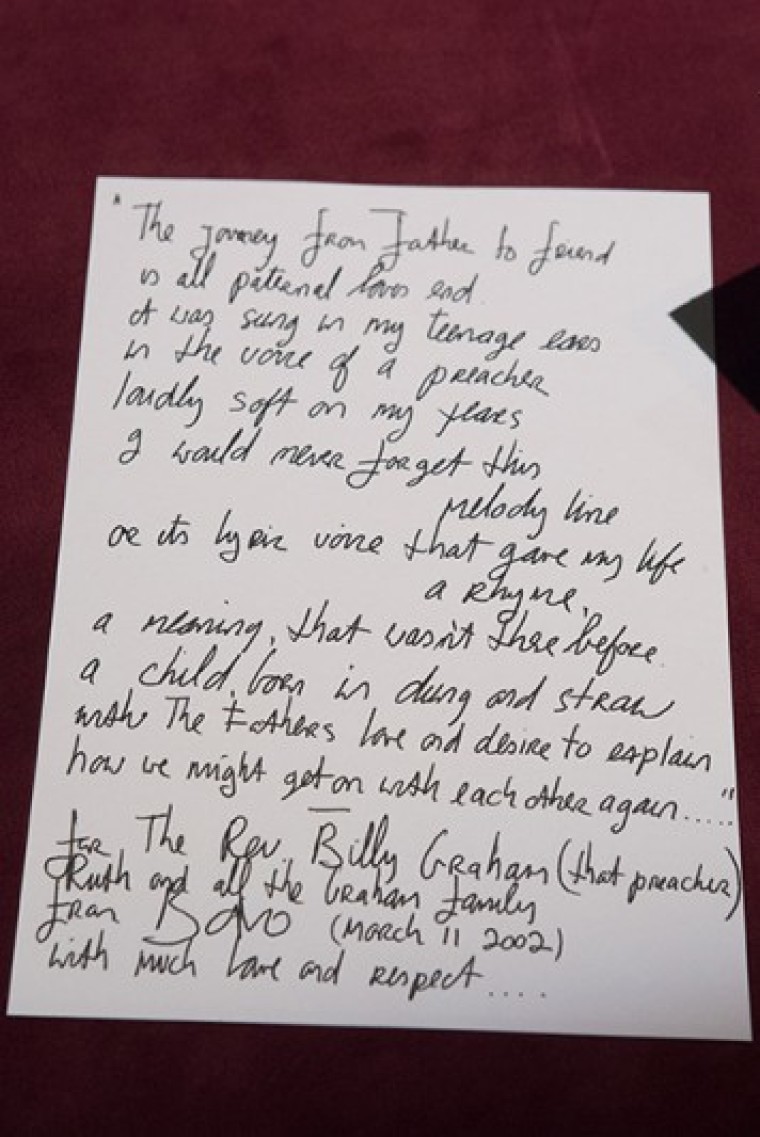 "The journey from Father to freind
is all paternal loves end.
It was sung in my teenage ears
in the voice of a preacher
loudly soft on my tears
I would never forget this
melody line
or its lyric voice that gave my life
a Rhyme,
a meaning, that wasn't there before.
a child, born in dung and straw
with The Fathers love and desire to explain
how we might get on with each other again....."
for The Rev. Billy Graham (that preacher)
Ruth and all the Graham family
from BONO (March 11 2002)
with much love and respect....